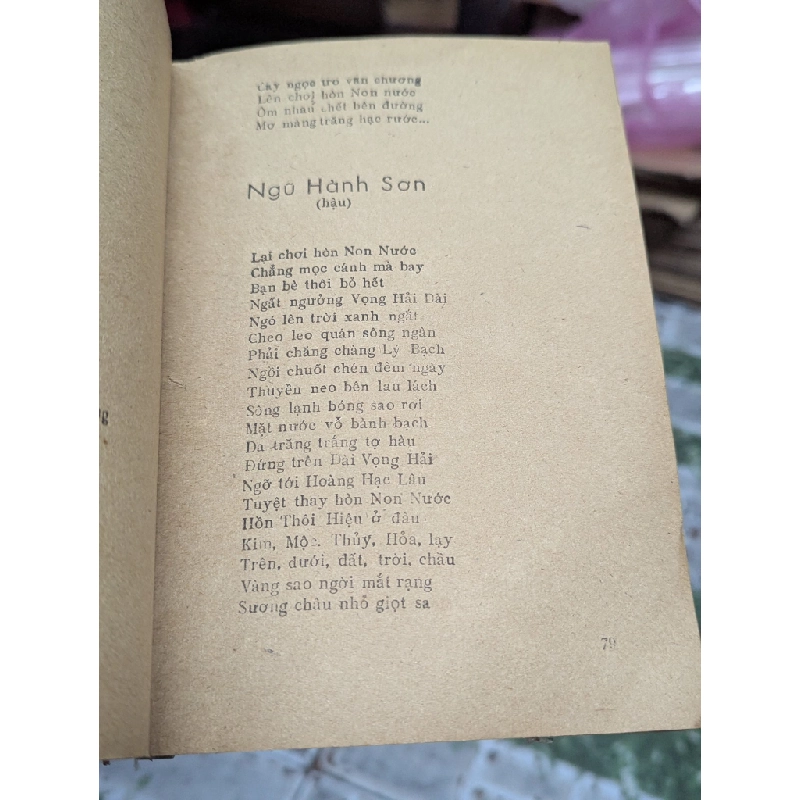 Cây ngọc trơ văn chương
Lên chơi hòn Non nước
Ôm nhau chết bên đường
Mơ màng trăng hạc rước...
Ngũ Hành Sơn
(hậu)
Lại chơi hòn Non Nước
Chẳng mọc cánh mà bay
Bạn bè thôi bỏ hết
Ngất ngưởng Vọng Hải Đài
Ngó lên trời xanh ngắt
Cheo leo quán sông ngân
Phải chăng chàng Lý Bạch
Ngồi chuốt chén đêm ngày
Thuyền neo bên lau lách
Sông lạnh bóng sao rơi
Mặt nước vỗ bành bạch
Da trăng trắng tợ hàu
Đứng trên Đài Vọng Hải
Ngỡ tới Hoàng Hạc Lâu
Tuyệt thay hòn Non Nước
Hồn Thôi Hiệu ở đâu
Kim, Mộc, Thủy, Hỏa, lạy
Trên, dưới, đất, trời, chầu
Vàng sao ngời mắt rạng
Sương châu nhỏ giọt sa
79